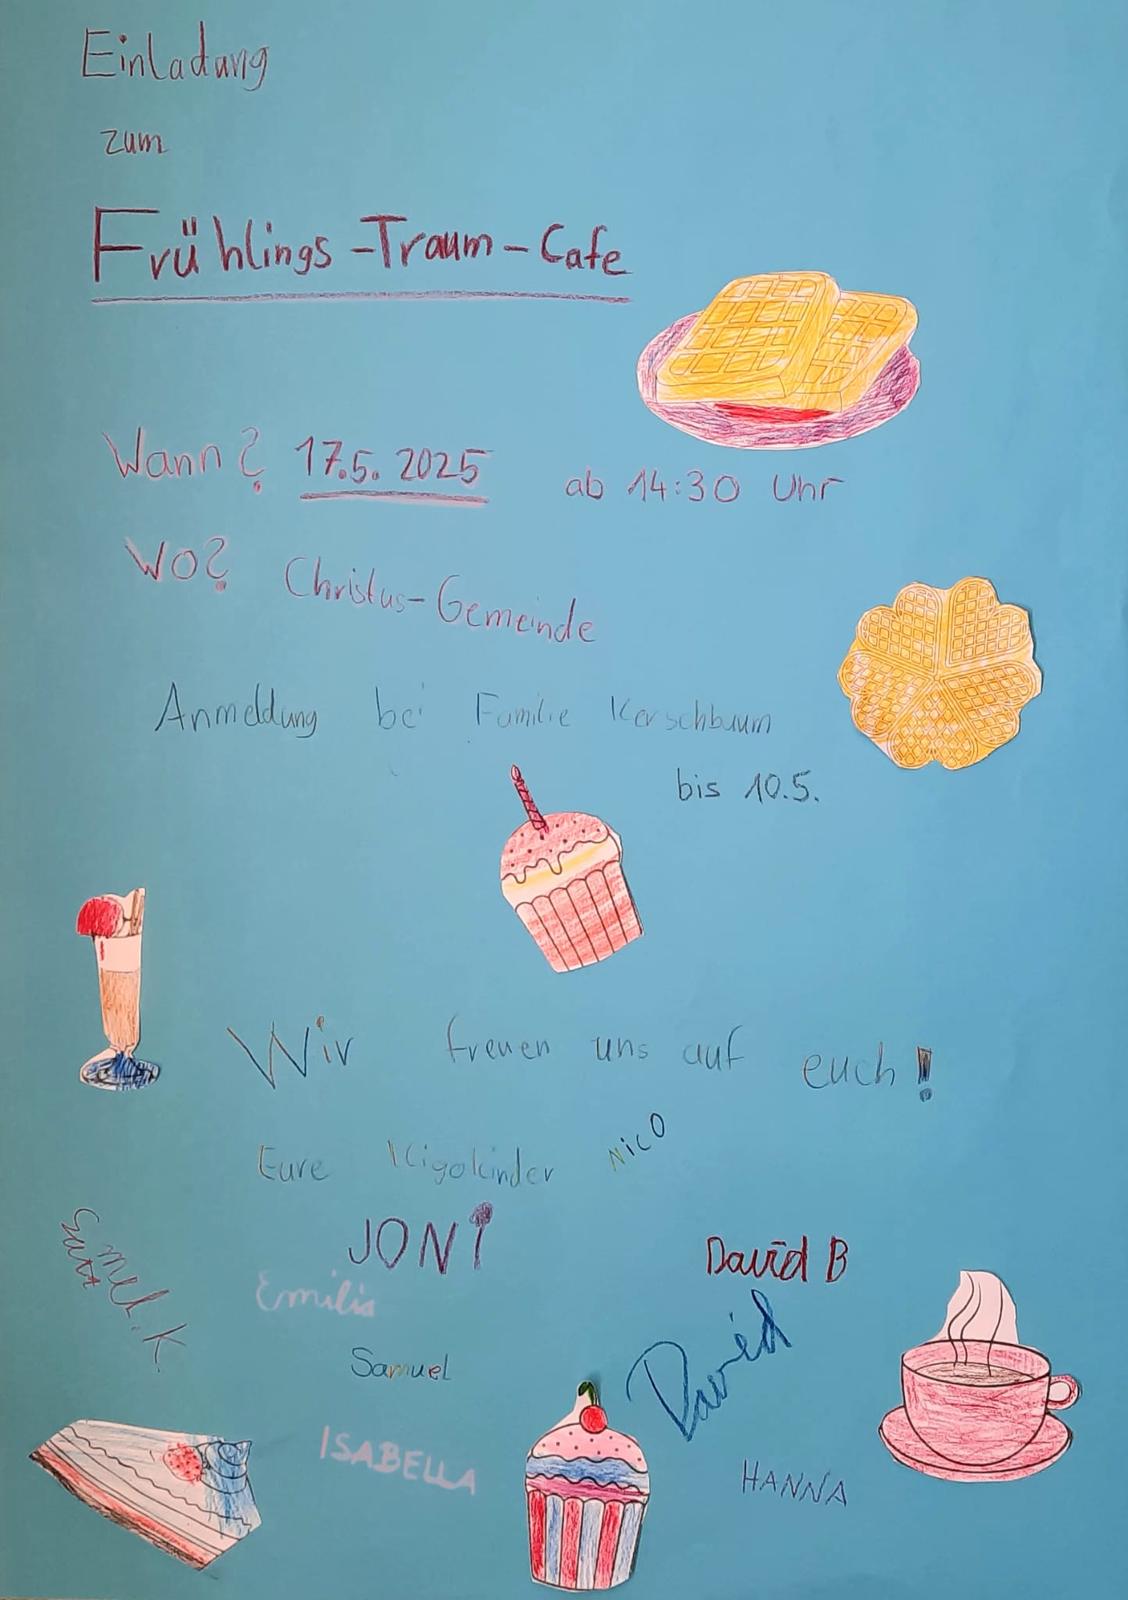 Einladung
zum
Frühlings-Traum-Cafe
Wann? 17.5. 2025 ab 14:30 Uhr
Wo? Christus-Gemeinde
Anmeldung bei Familie Kerschbaum
bis 10.5.
Wir freuen uns auf euch!
Eure Kigokinder NiCO
JONi
David B
Emilia
Samuel
David
ISABELLA
HANNA